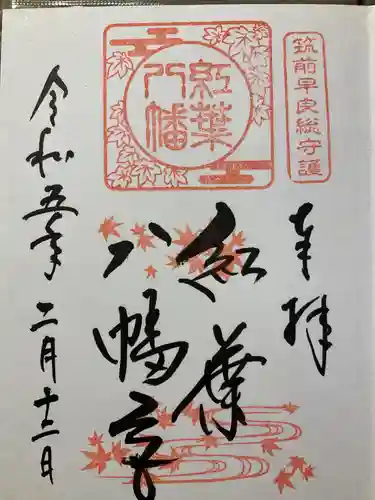 筑前早良総守護
紅葉
八幡
奉拝
紅葉
八幡宮
令和五年二月十二日